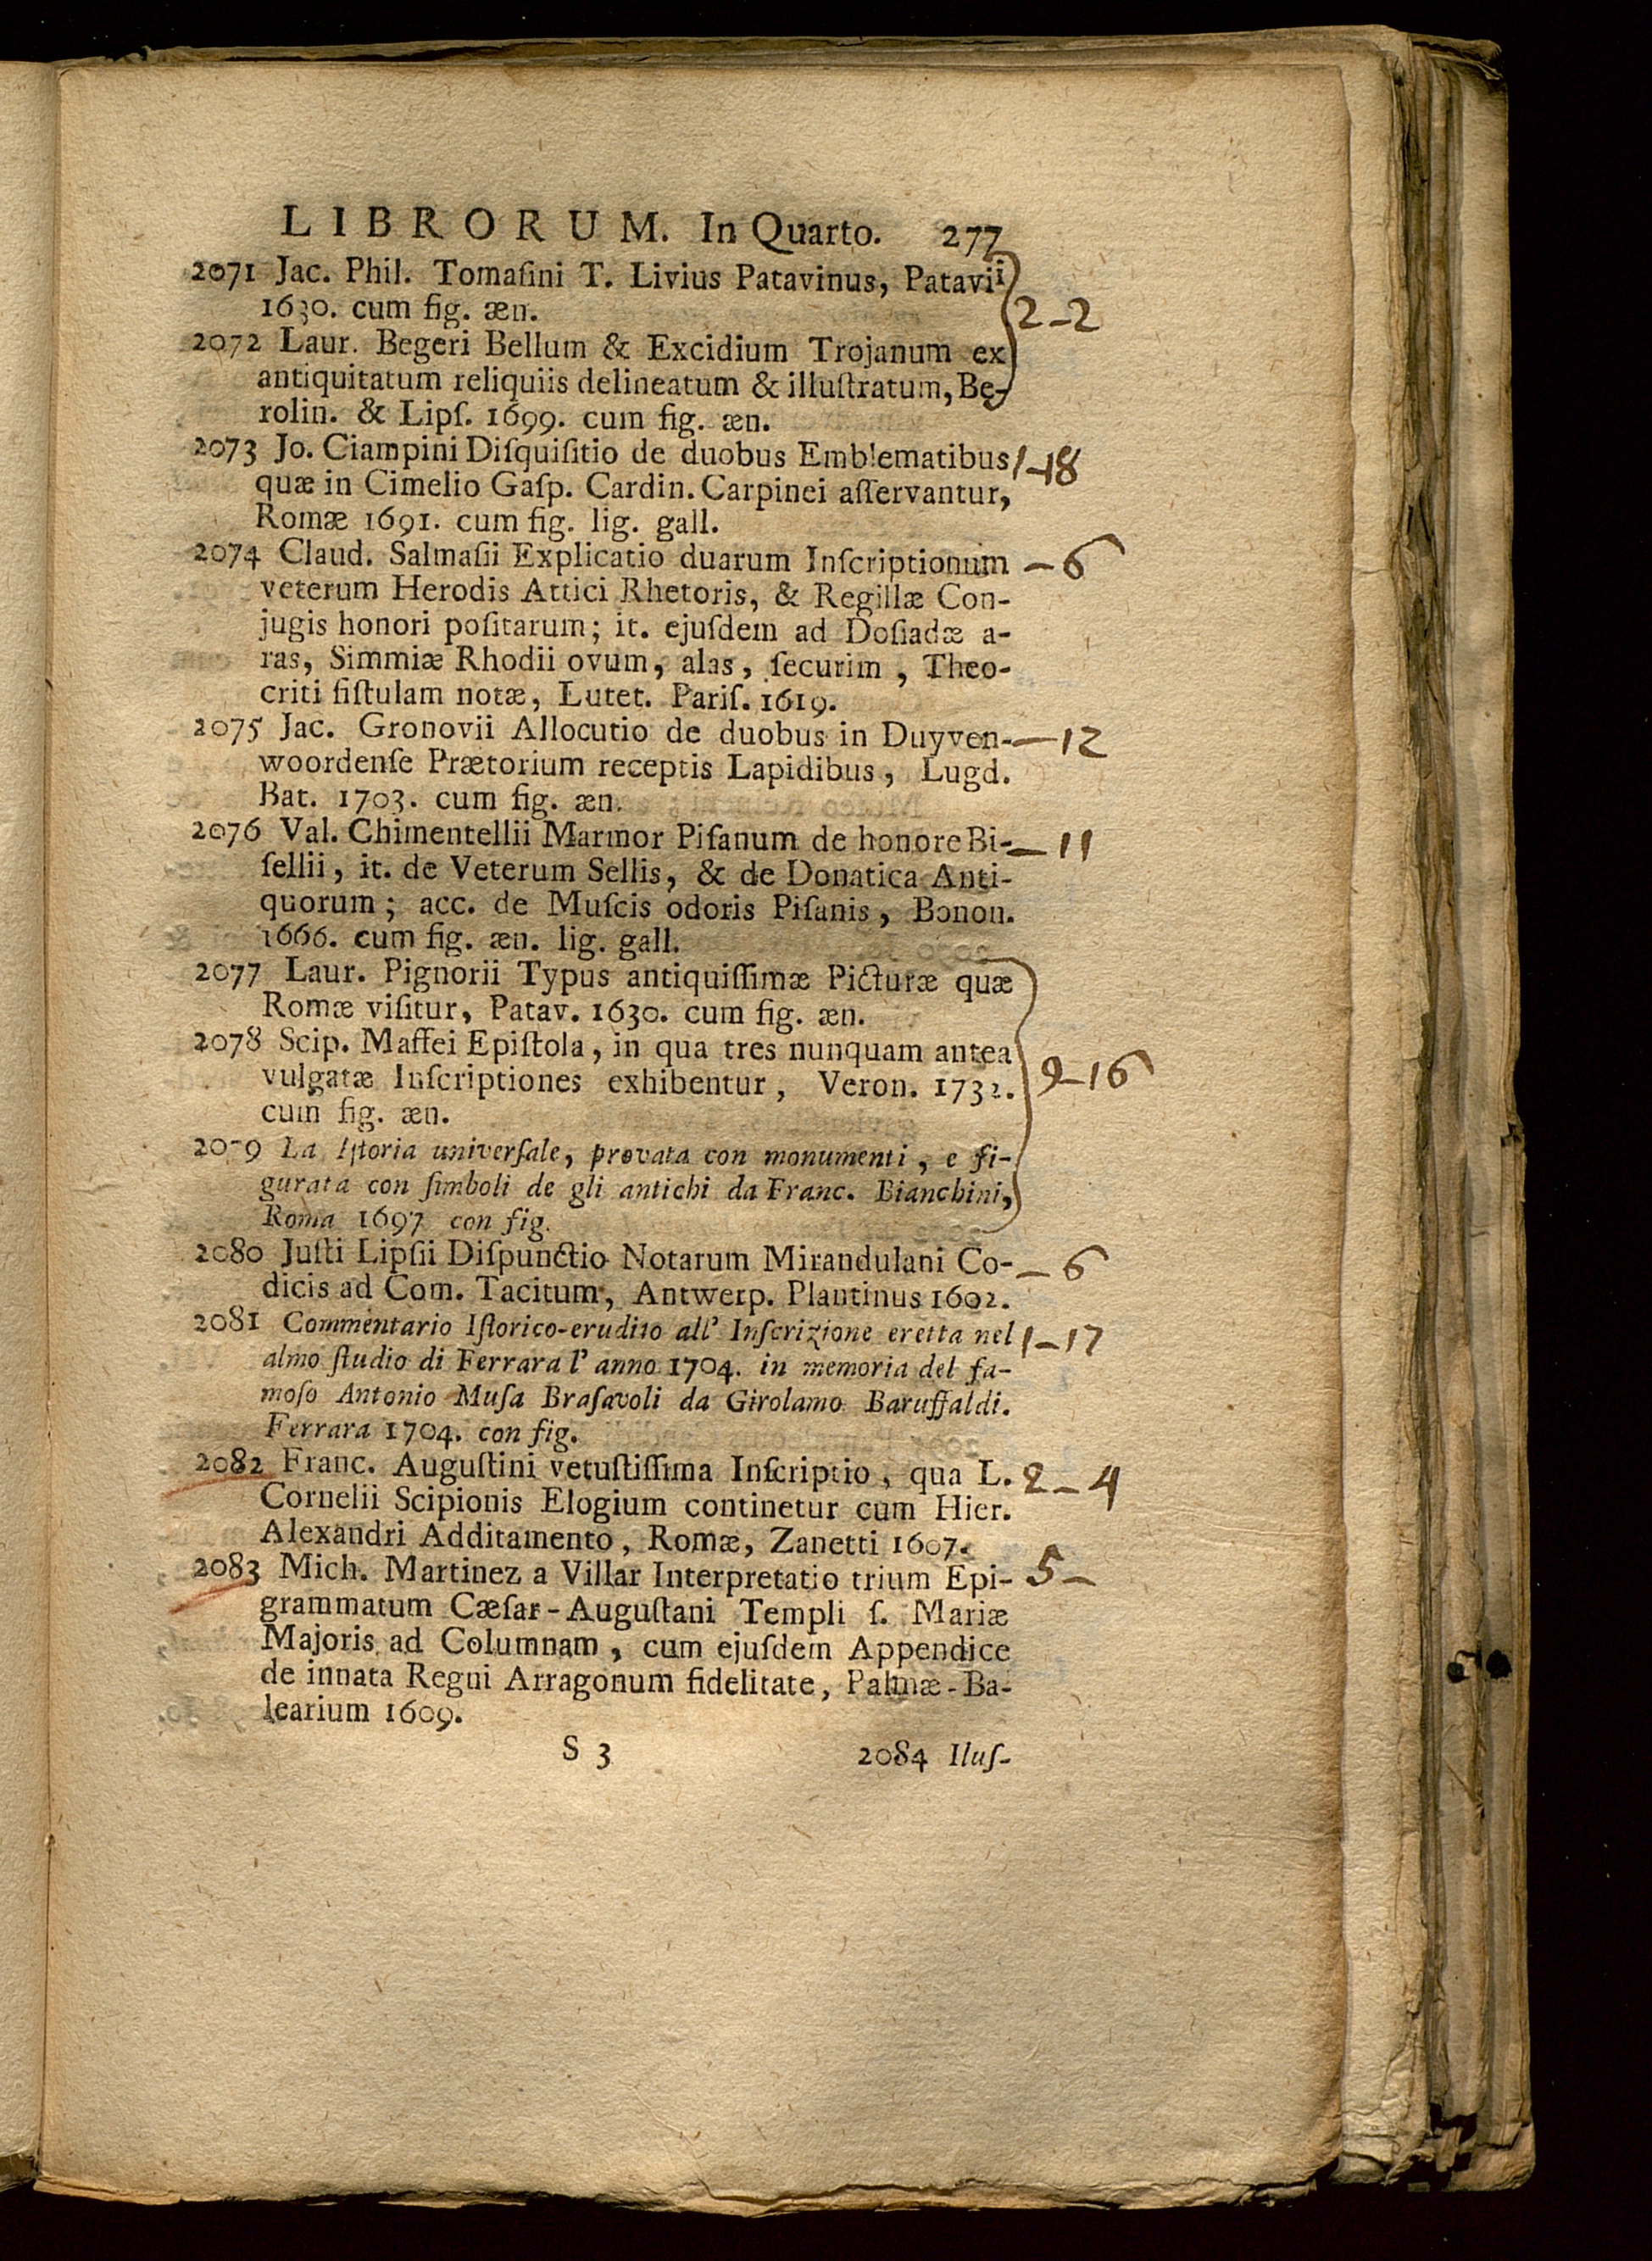 LIBRORUM. In Quarto. 277
2071 Jac. Phil. Tomaſini T. Livius Patavinus, Patavii
1630. cum fig. æn.
2-2
2072 Laur. Begeri Bellum & Excidium Trojanum ex
antiquitatum reliquiis delineatum & illuſtratum, Be-
rolin. & Lipſ. 1699. cum fig. æn.
2073 Jo. Ciampini Diſquiſitio de duobus Emblematibus 1-18
quæ in Cimelio Gaſp. Cardin. Carpinei aſſervantur,
Romæ 1691. cum fig. lig. gall.
2074 Claud. Salmaſii Explicatio duarum Inſcriptionum -6
veterum Herodis Attici Rhetoris, & Regillæ Con-
jugis honori poſitarum; it. ejuſdem ad Doſiadæ a-
ras, Simmiæ Rhodii ovum, alas, ſecurim, Theo-
criti fiſtulam notæ, Lutet. Pariſ. 1619.
2075 Jac. Gronovii Allocutio de duobus in Duyven- -12
woordenſe Prætorium receptis Lapidibus, Lugd.
Bat. 1703. cum fig. æn.
2076 Val. Chimentellii Marmor Piſanum de honore Bi- -11
ſellii, it. de Veterum Sellis, & de Donatica Anti-
quorum; acc. de Muſcis odoris Piſanis, Bonon.
1666. cum fig. æn. lig. gall.
2077 Laur. Pignorii Typus antiquiſſimæ Picturæ quæ
Romæ viſitur, Patav. 1630. cum fig. æn.
2078 Scip. Maffei Epiſtola, in qua tres nunquam antea
vulgatæ Inſcriptiones exhibentur, Veron. 1732. 9-16
cum fig. æn.
2079 La Iſtoria univerſale, provata con monumenti, e fi-
gurata con ſimboli de gli antichi da Franc. Bianchini,
Roma 1697 con fig.
2080 Juſti Lipſii Diſpunctio Notarum Mirandulani Co- -6
dicis ad Com. Tacitum, Antwerp. Plantinus 1602.
2081 Commentario Iſtorico-erudito all' Inſcrizione eretta nel 1-17
almo ſtudio di Ferrara l' anno 1704. in memoria del fa-
moſo Antonio Muſa Braſavoli da Girolamo Baruffaldi.
Ferrara 1704. con fig.
2082 Franc. Auguſtini vetuſtiſſima Inſcriptio, qua L. 2-4
Cornelii Scipionis Elogium continetur cum Hier.
Alexandri Additamento, Romæ, Zanetti 1607.
2083 Mich. Martinez a Villar Interpretatio trium Epi- 5-
grammatum Cæſar-Auguſtani Templi ſ. Mariæ
Majoris ad Columnam, cum ejuſdem Appendice
de innata Regni Arragonum fidelitate, Palmæ-Ba-
learium 1609.
S 3 2084 Iluſ-